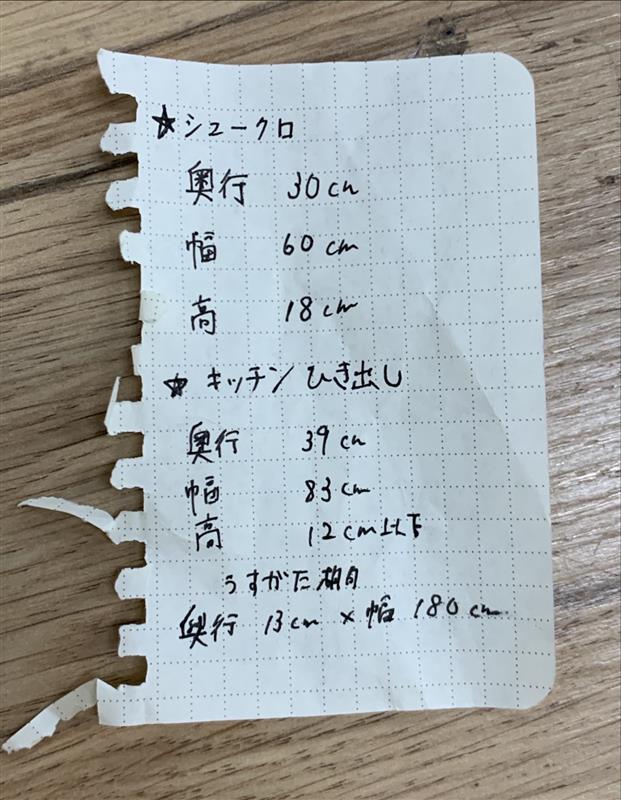 ★シュークロ
奥行 30cm
幅 60cm
高 18cm
★キッチンひき出し
奥行 39cm
幅 83cm
高 12cm以下
うすがた棚
奥行 13cm × 幅 180cm